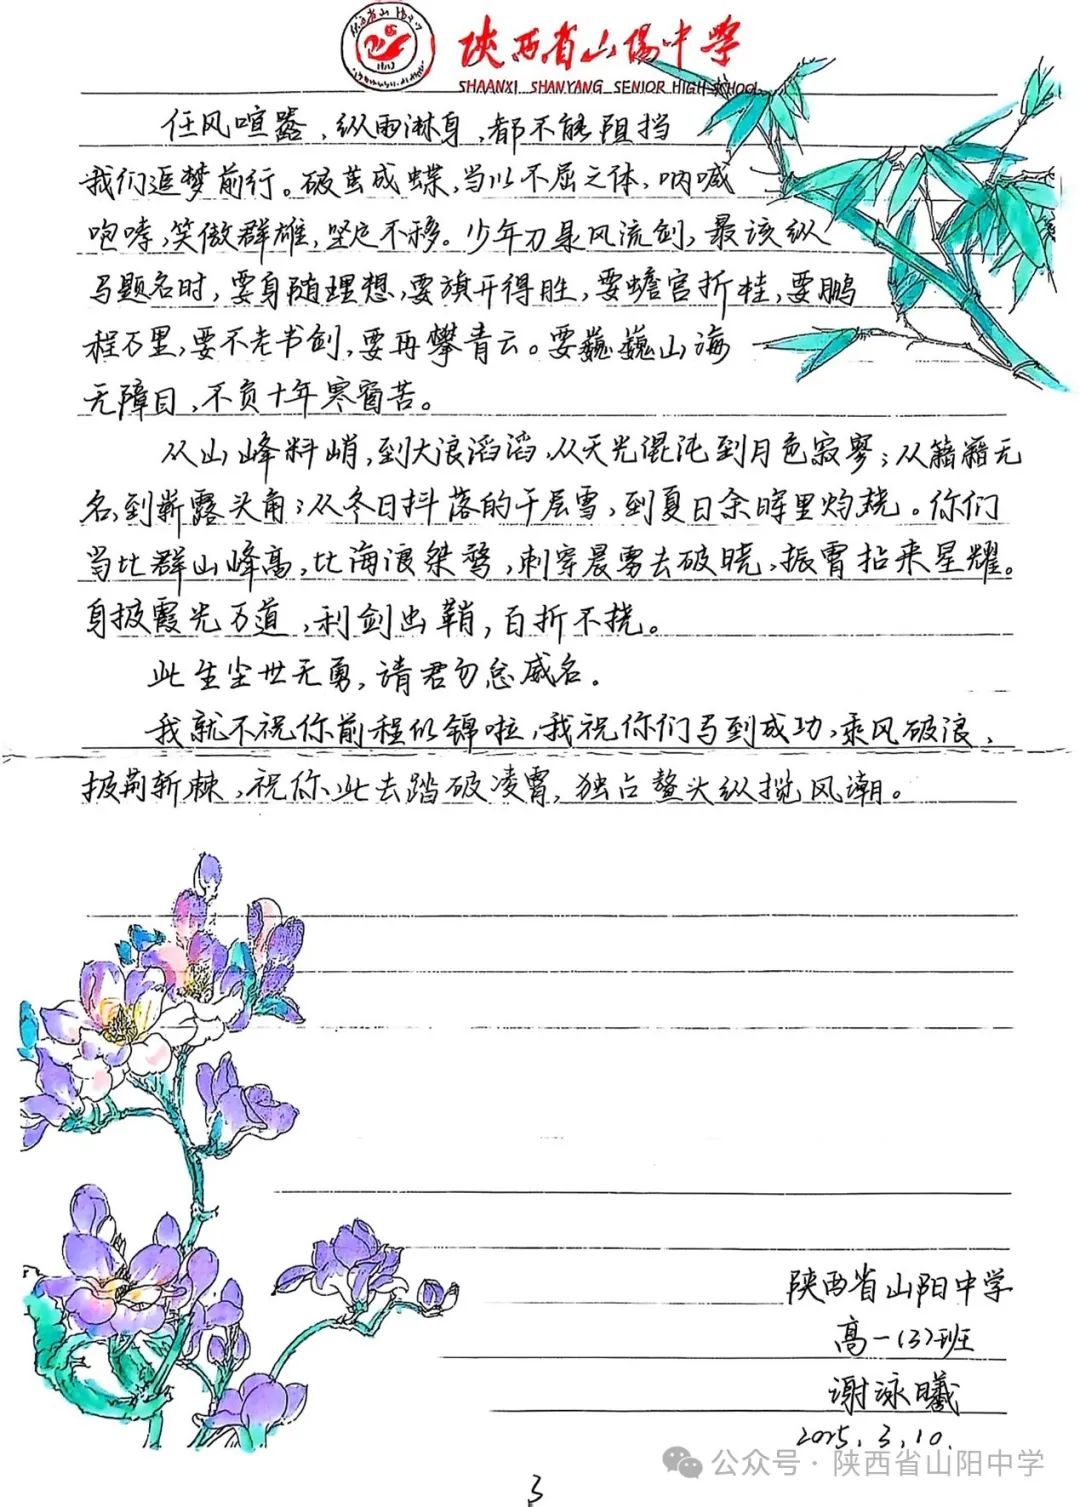 陕西省山阳中学
SHAANXI SHANYANG SENIOR HIGH SCHOOL
任风喧嚣,纵雨淋身,都不能阻挡
我们追梦前行。破茧成蝶,当以不屈之体,呐喊
咆哮,笑傲群雄,坚定不移。少年刀泉风流剑,最该纵
马题名时,要身随理想,要旗开得胜,要蟾宫折桂,要鹏
程万里,要不老书剑,要再攀青云。要巍巍山海
无障目,不负十年寒窗苦。
从山峰料峭,到大浪滔滔,从天光混沌到月色寂寥;从籍籍无
名,到崭露头角;从冬日抖落的千层雪,到夏日余晖里灼烧。你们
当比群山峰高,比海浪桀骜,刺穿晨雾去破晓,振霄拈来星耀。
身披霞光万道,利剑出鞘,百折不挠。
此生尘世无勇,请君勿怠威名。
我就不祝你前程似锦啦,我祝你们马到成功,乘风破浪、
披荆斩棘,祝你此去踏破凌霄,独占鳌头纵揽风潮。
陕西省山阳中学
高一(3)班
谢泳曦
2025.3.10.
公众号·陕西省山阳中学
3